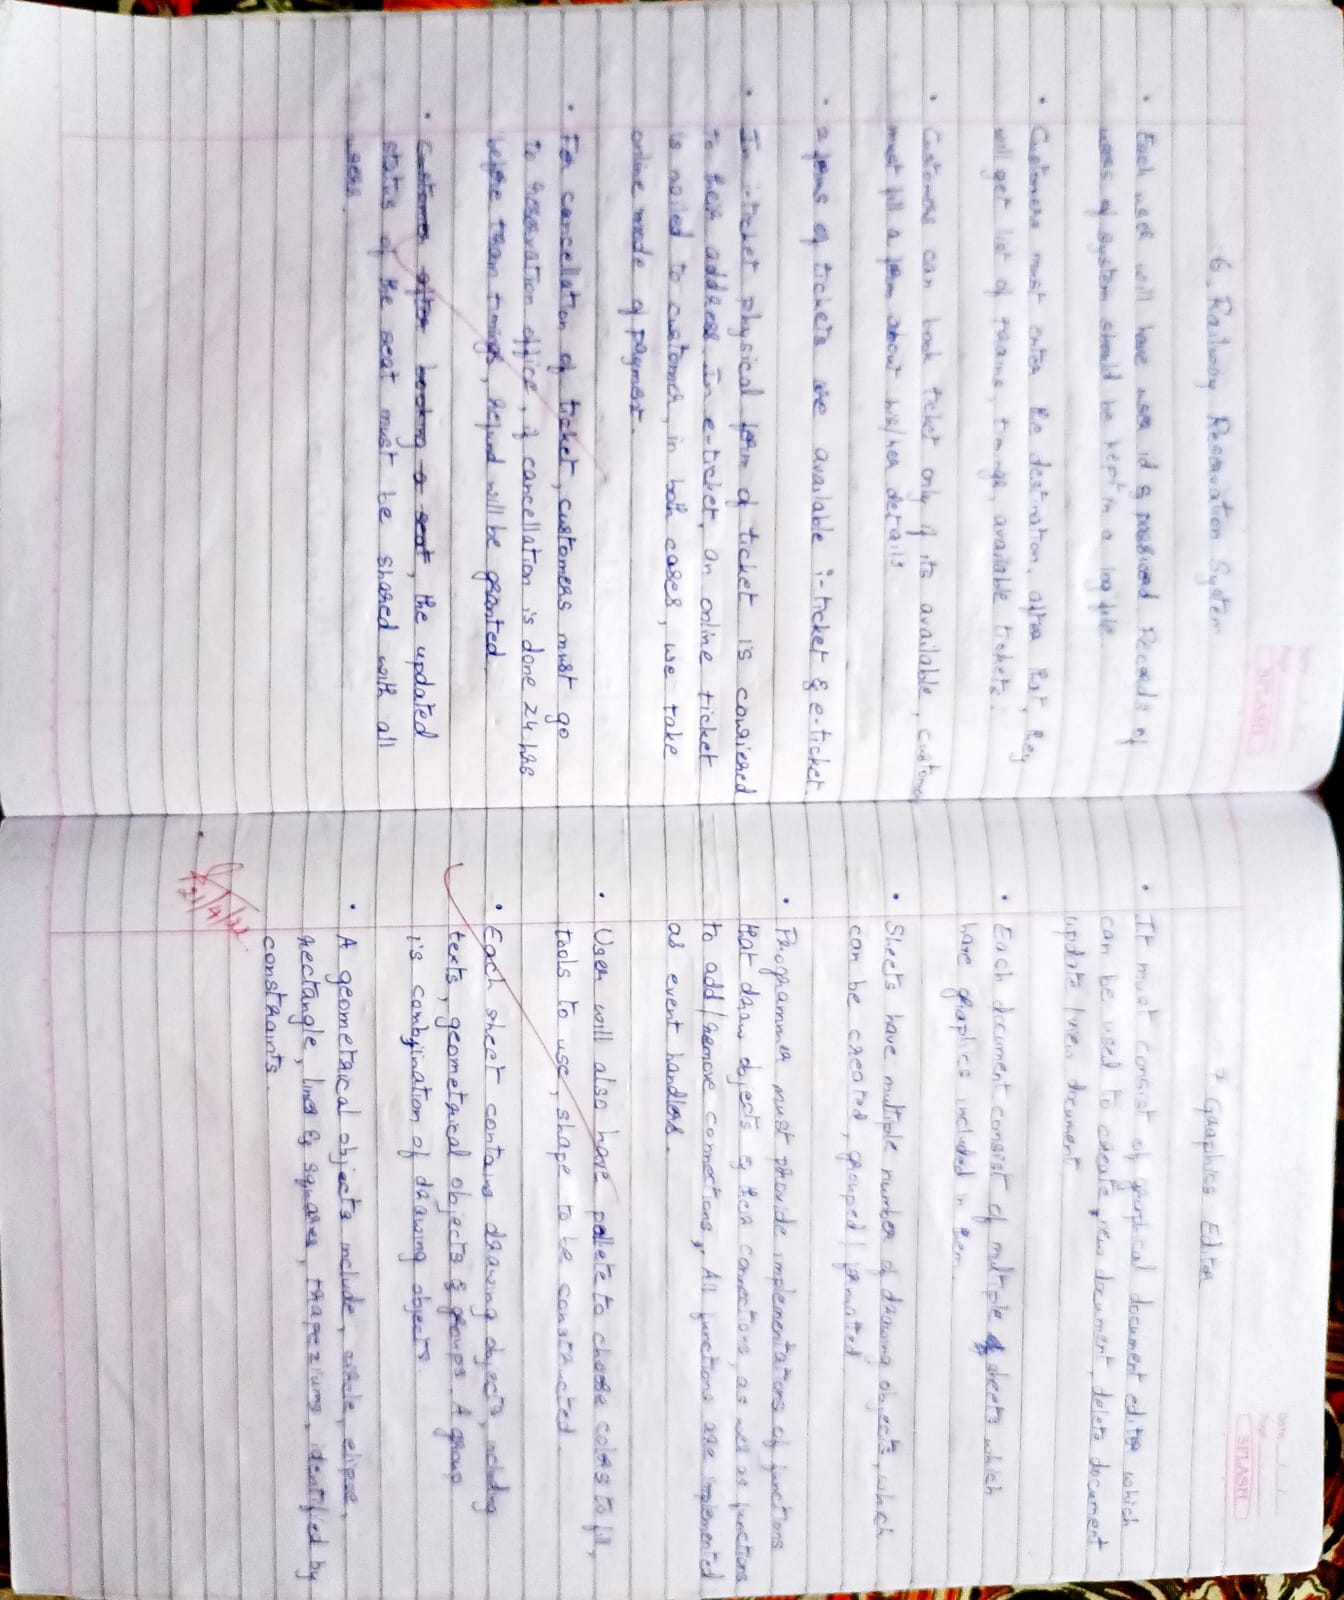 6. Railway Reservation System
• Each user will have user id & password Records of
users of system should be kept in a log file
• Customers must enter the destination, after that, they
will get list of trains, timings, available tickets.
• Customers can book ticket only if its available, customer
must fill a form about his/her details.
• 2 forms of tickets are available i-ticket & e-ticket.
• In i-ticket physical form of ticket is couriered
to their address. In e-ticket, an online ticket
is mailed to customer, in both cases, we take
online mode of payment.
• For cancellation of ticket, customers must go
to reservation office, if cancellation is done 24 hrs
before train timings, refund will be granted.
• Customer after booking a seat, the updated
status of the seat must be shared with all
users.
SPLASH
7 Graphics Editor
• It must consist of graphical document editor which
can be used to create new document, delete document
update / view document
• Each document consist of multiple sheets which
have graphics included in them.
• Sheets have multiple number of drawing objects, which
can be created, grouped / formatted
• Programmer must provide implementations of functions
that draw objects & their connections, as well as functions
to add / remove connections, All functions are implemented
as event handlers.
• User will also have pallete to choose colors to fill,
tools to use, shape to be constructed.
• Each sheet contains drawing objects, including
texts, geometrical objects & groups. A group
is combination of drawing objects.
• A geometrical objects include, circle, ellipse,
rectangle, lines & squares, trapeziums, identified by
constraints.
Date / /
Page
SPLASH